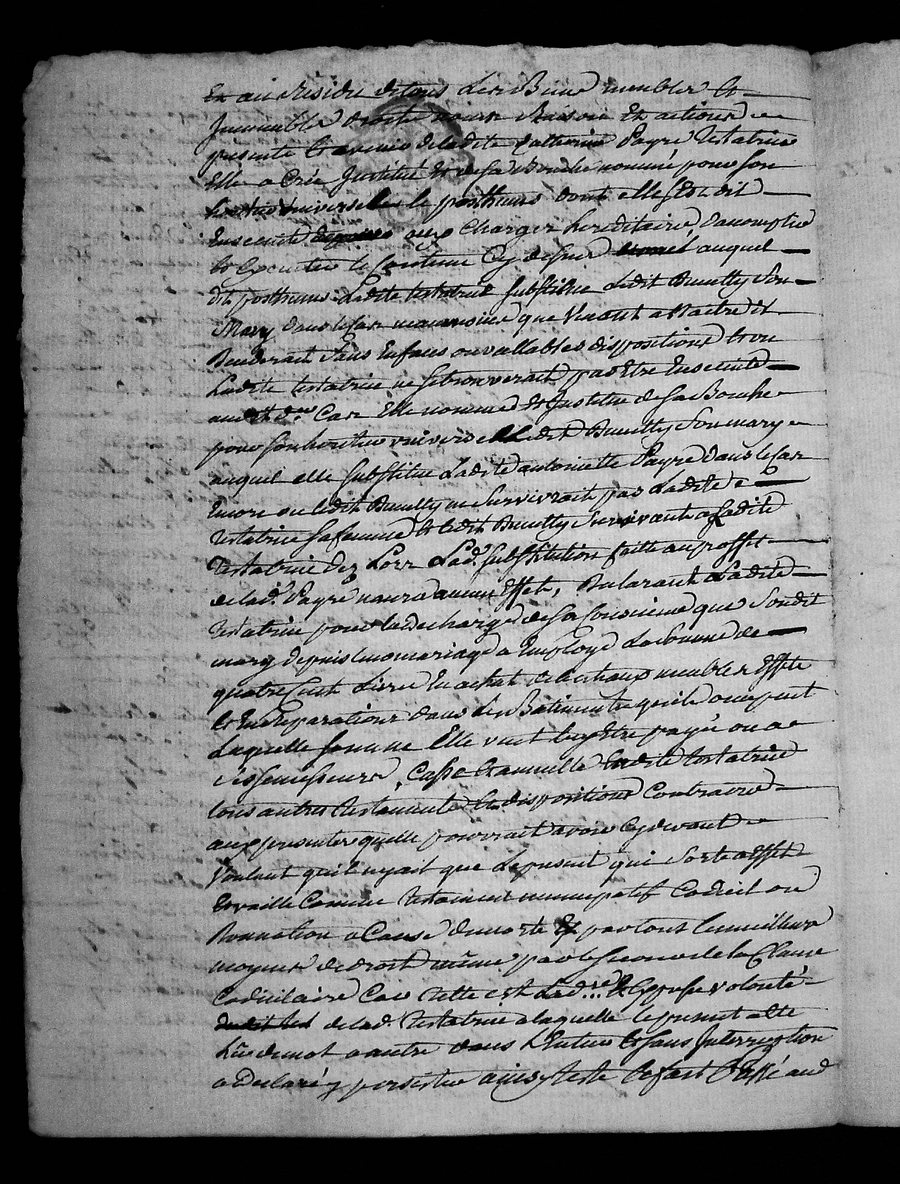 Et au Residu de tous Les Biens meubles Et
Immeubles droits noms Raisons Et actions
presents Et avenir de ladite Catherine Payre testatrice
Elle a Crée Institué Et de sa Bouche nommé pour son
heritier universelle le posthume dont elle s'Est dit
Enceinte aux Charges hereditaire d'acomplir
Et Executer le Contenu Cy dessus auquel
dit posthume Ladite testatrice substitue Ledit Bueilly son
Mary dans le Cas neanmoins que Venant a Naitre il
Decederait sans Enfans ou vallables dispositions Et ou
Ladite testatrice ne se trouverait pas Etre Enceinte
audit d.er Cas Elle nomme Et Institue de sa Bouche
pour son heritier universelle ledit Bueilly son mary
auquel elle substitue Ladite antoinette Payre dans le Cas
Encore ou ledit Bueilly ne survivrait pas Ladite
testatrice sa femme Et ledit Bueilly survivant a sadite
testatrice Dez Lors Lad.e substitution faite au proffit
de lad.e Payre n'aura aucun Effet, Declarant Ladite
testatrice pour la decharge de sa Conscience que sondit
mary depuis leur mariage a Employé La somme de
quatre Cent Livres En achat de bestiaux meubles Effets
Et En Reparations dans Les Batiments qu'ils occupent
Laquelle somme Elle veut luy Etre payée ou a
ses successeurs, Casse Et annulle Ladite testatrice
tous autres testaments Et dispositions Contraires
aux presentes qu'elle pourrait avoir Cy devant
Voulant qu'il n'y ait que Le present qui sorte a Effet
Et vaille Comme testament nuncupatif Codicil ou
Donnation a Cause de mort Et par tous les meilleurs
moyens de droit même par le secours de la Clause
Codicilaire Car telle est Lad.re Et Expresse volonté
de lad.e testatrice a laquelle le present a Eté
Lu de mot a autre dans L'Entier Et sans Interruption
a Declaré y persister ainsy testé Ce fait Passé aud